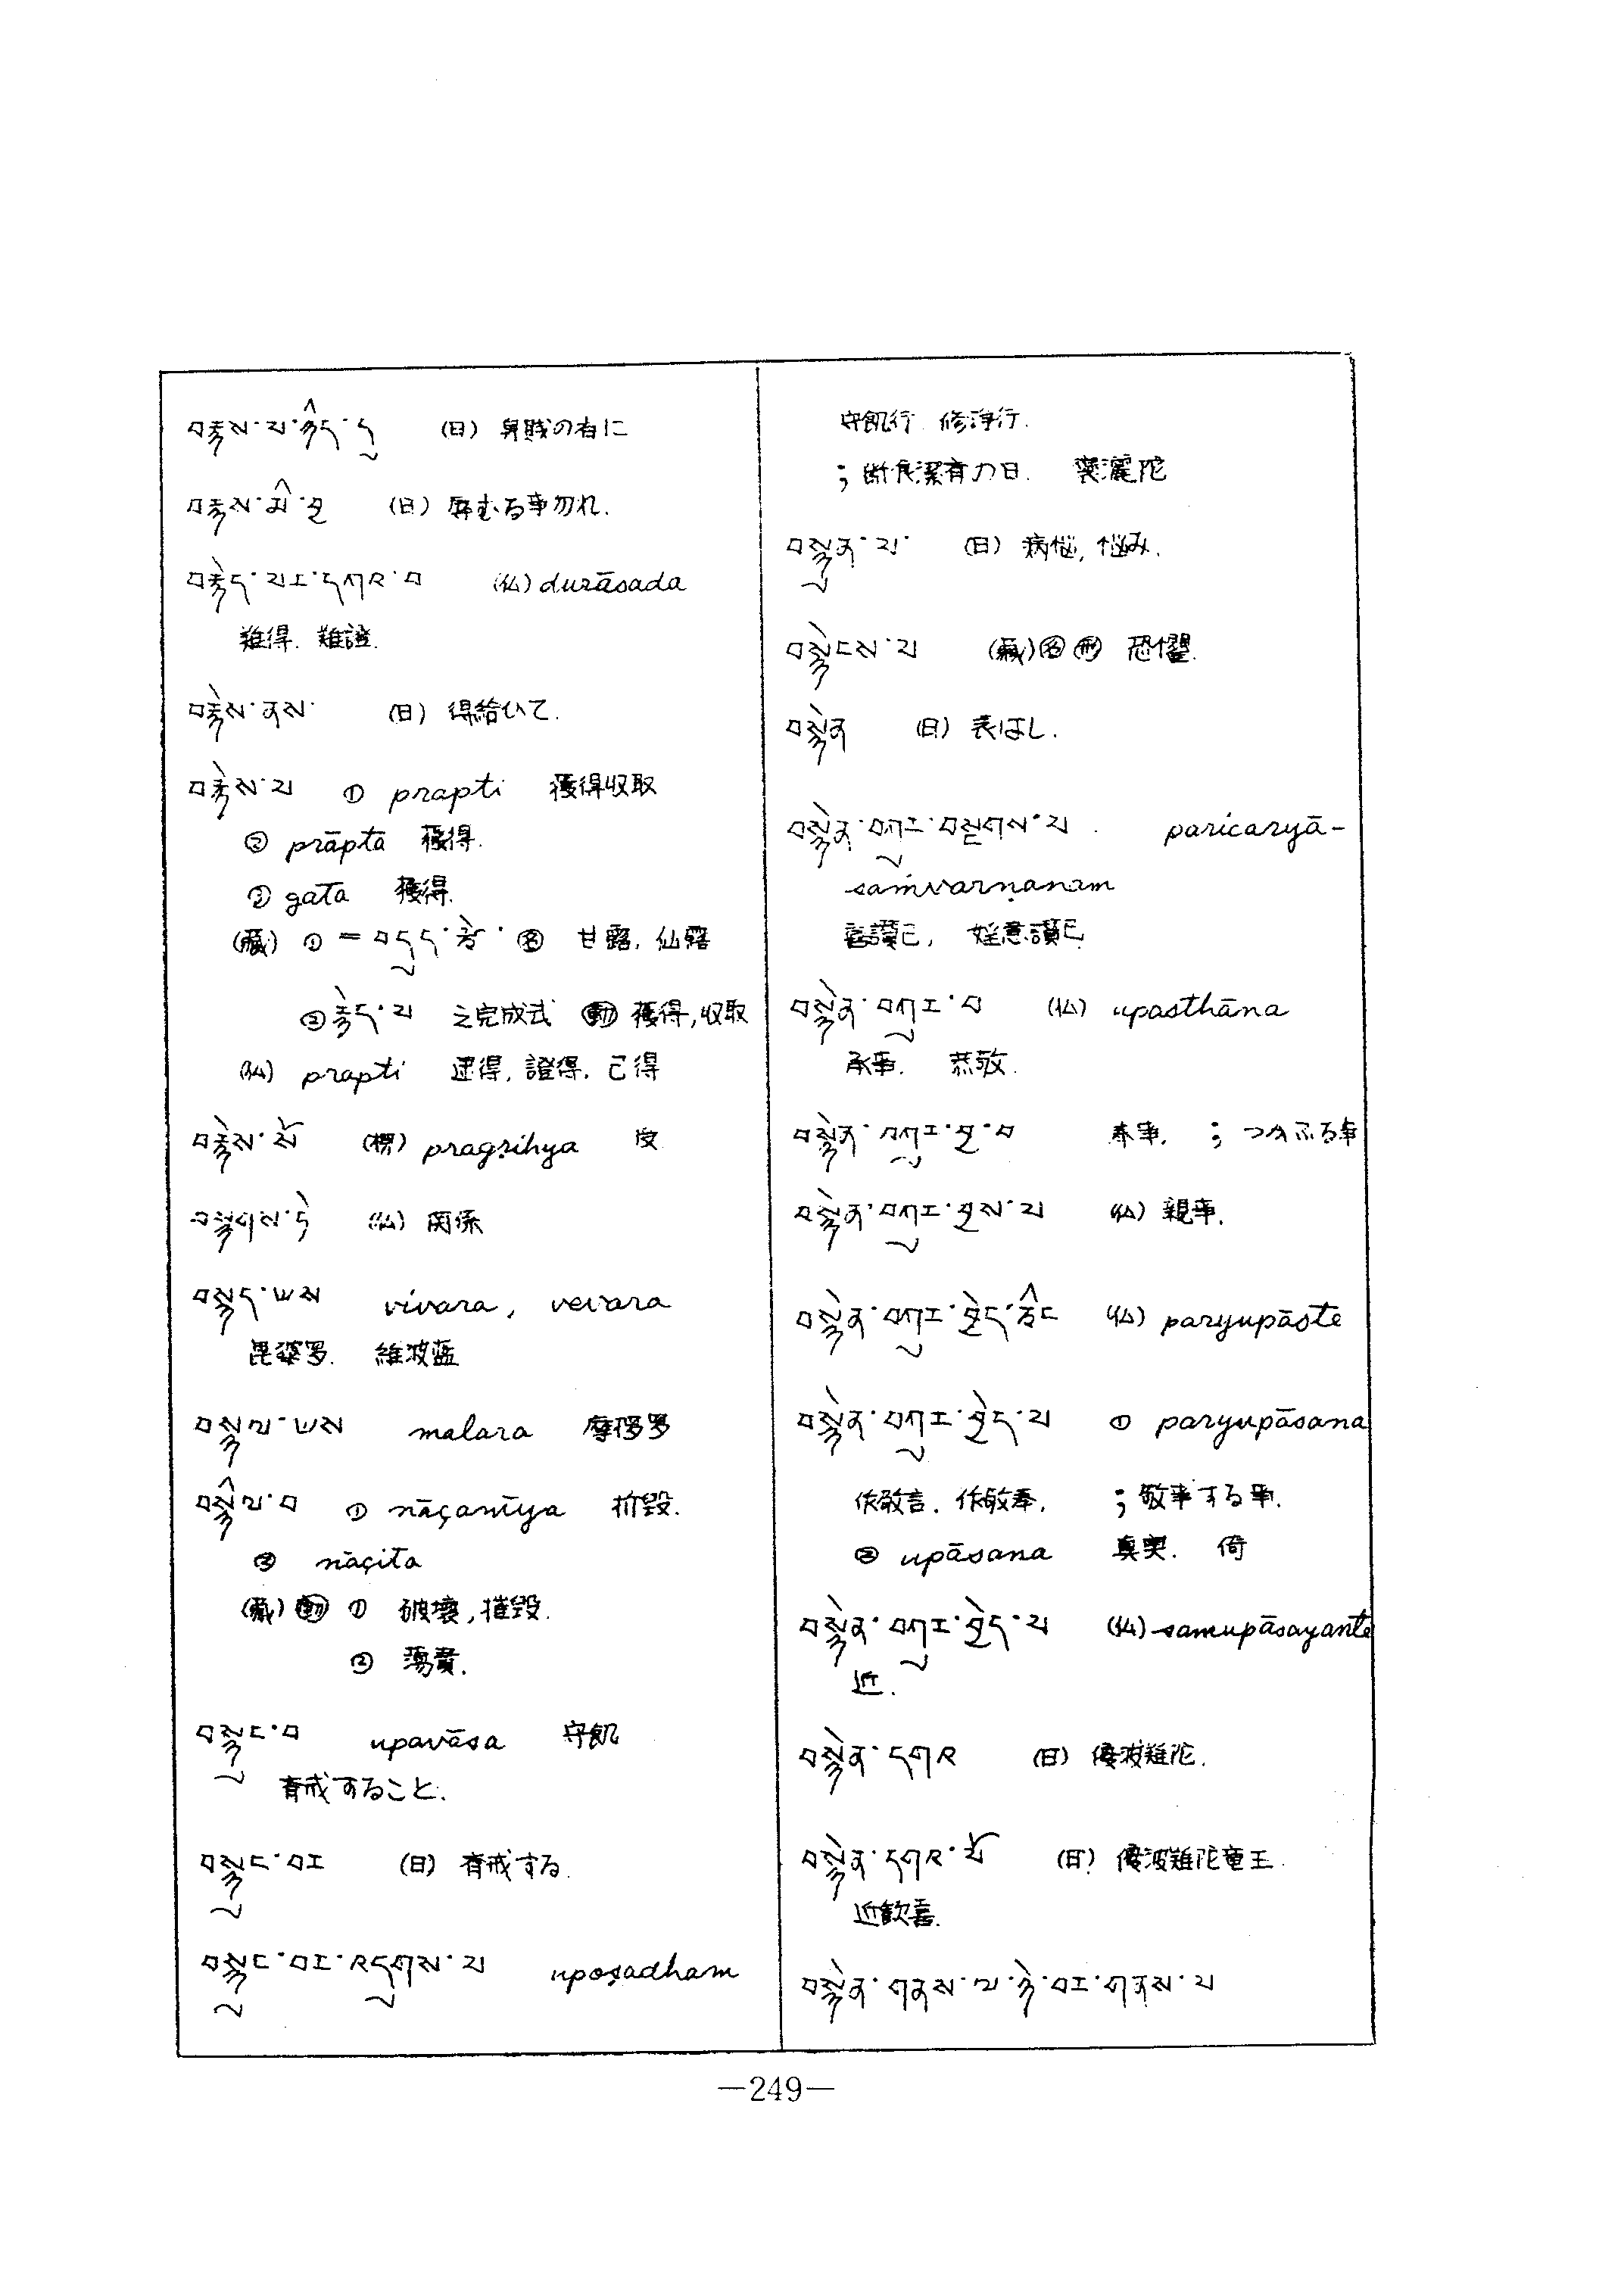 བརྙས་པ་ཉིད་དུ (日) 卑賤の者に
བརྙས་མི་བྱ (日) 辱むる事勿れ.
བརྙེད་པར་དཀའ་བ (仏) durāsada
難得. 難證.
བརྙེས་ནས་ (日) 得給ひて.
བརྙེས་པ ① prapti 獲得収取
② prāpta 獲得.
③ gata 獲得.
(藏) ① = བདུད་རྩི་ 名 甘露, 仙露
② རྙེད་པ 之完成式 動 獲得,収取
(仏) prapti 逮得, 證得. 已得
བརྙེས་སོ pragṛihya
བསྙགས་ཏེ (仏) 関係
བསྙད་ཡས vivara, vevara
毘婆罗. 維波蓝
བསྙལ་ཡས malara 摩㣋罗
བསྙིལ་བ ① nāçanīya 折毀.
② nāçita
(藏) 動 ① 破壞, 摧毀.
②
བསྙུང་བ upavāsa 守飢
斎戒すること.
བསྙུང་བར (日) 斎戒する.
བསྙུང་བར་འདུགས་པ upoṣadham
守飢行 修淨行.
; 断食潔斎の日. 褒灑陀
བསྙུན་པ་ (日) 病悩, 悩み.
བསྙེངས་པ (藏) 名 形 恐懼.
བསྙེན (日) 表はし.
བསྙེན་བཀུར་བསྔགས་པ . paricaryā-
saṁvarṇanam
喜讃己, 婬意讃己
བསྙེན་བཀུར་བ (仏) upasthāna
承事. 恭敬.
བསྙེན་བཀུར་བྱ་བ 奉事. ; つかふる事
བསྙེན་བཀུར་བྱས་པ (仏) 親事.
བསྙེན་བཀུར་བྱེད་ཅིང (仏) paryupāste
བསྙེན་བཀུར་བྱེད་པ ① paryupāsana
作敬言. 作敬奉. ; 敬事する事.
② upāsana 真実. 倚
བསྙེན་བཀུར་བྱེད་པ (仏) samupāsayante
近.
བསྙེན་དགའ (日) 優波難陀.
བསྙེན་དགའ་བོ (日) 優波難陀竜王.
近歓喜.
བསྙེན་གནས་ལ་ཉེ་བར་གནས་པ
—249—